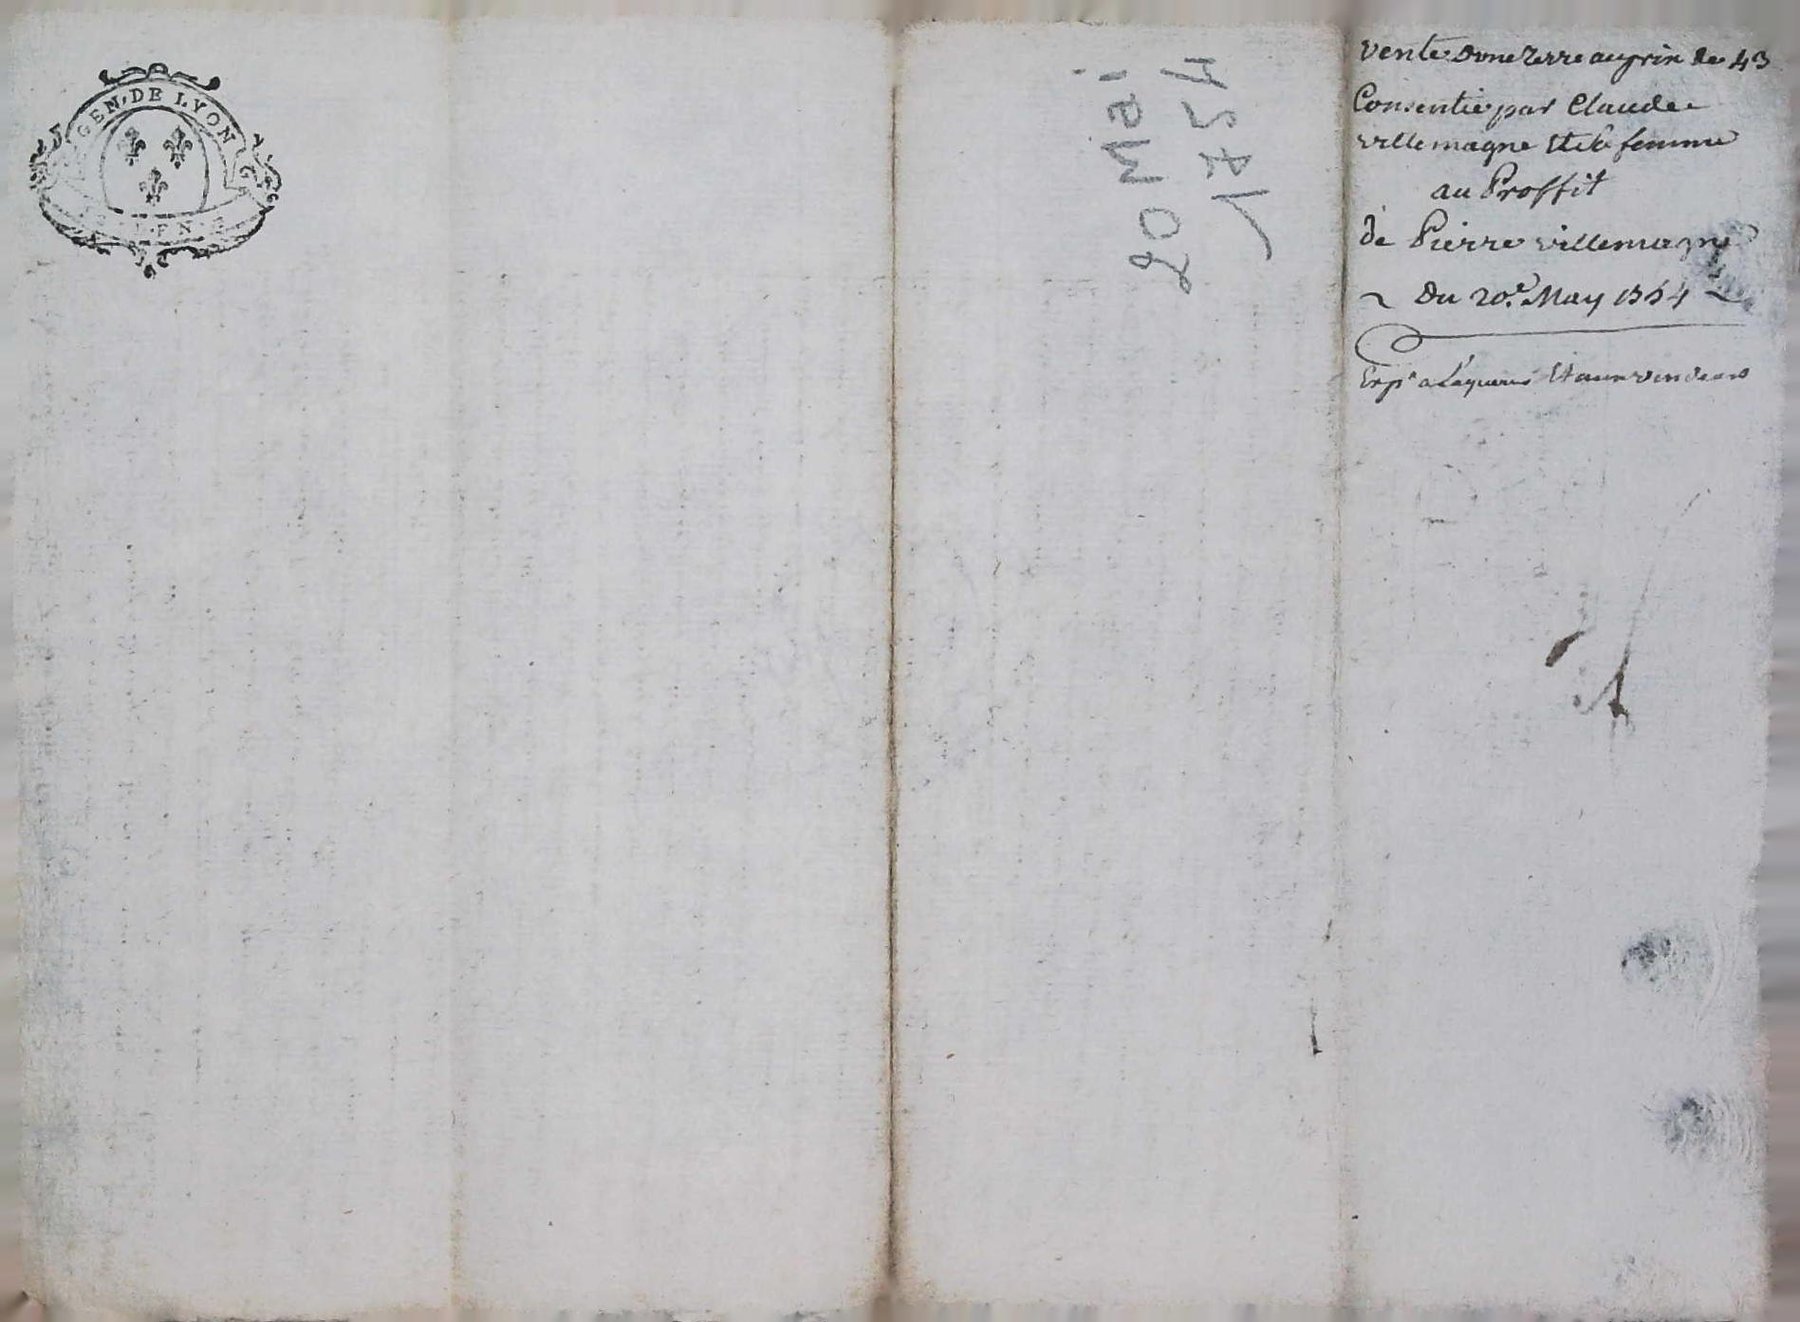 GEN. DE LYON
vente dune terre au prix de 43
Consentie par Claude
villemagne Et sa femme
au Proffit
de Pierre villemagne
du 20e May 1754
Expé a Laquereur Et aux vendeurs
20 Mai
1754